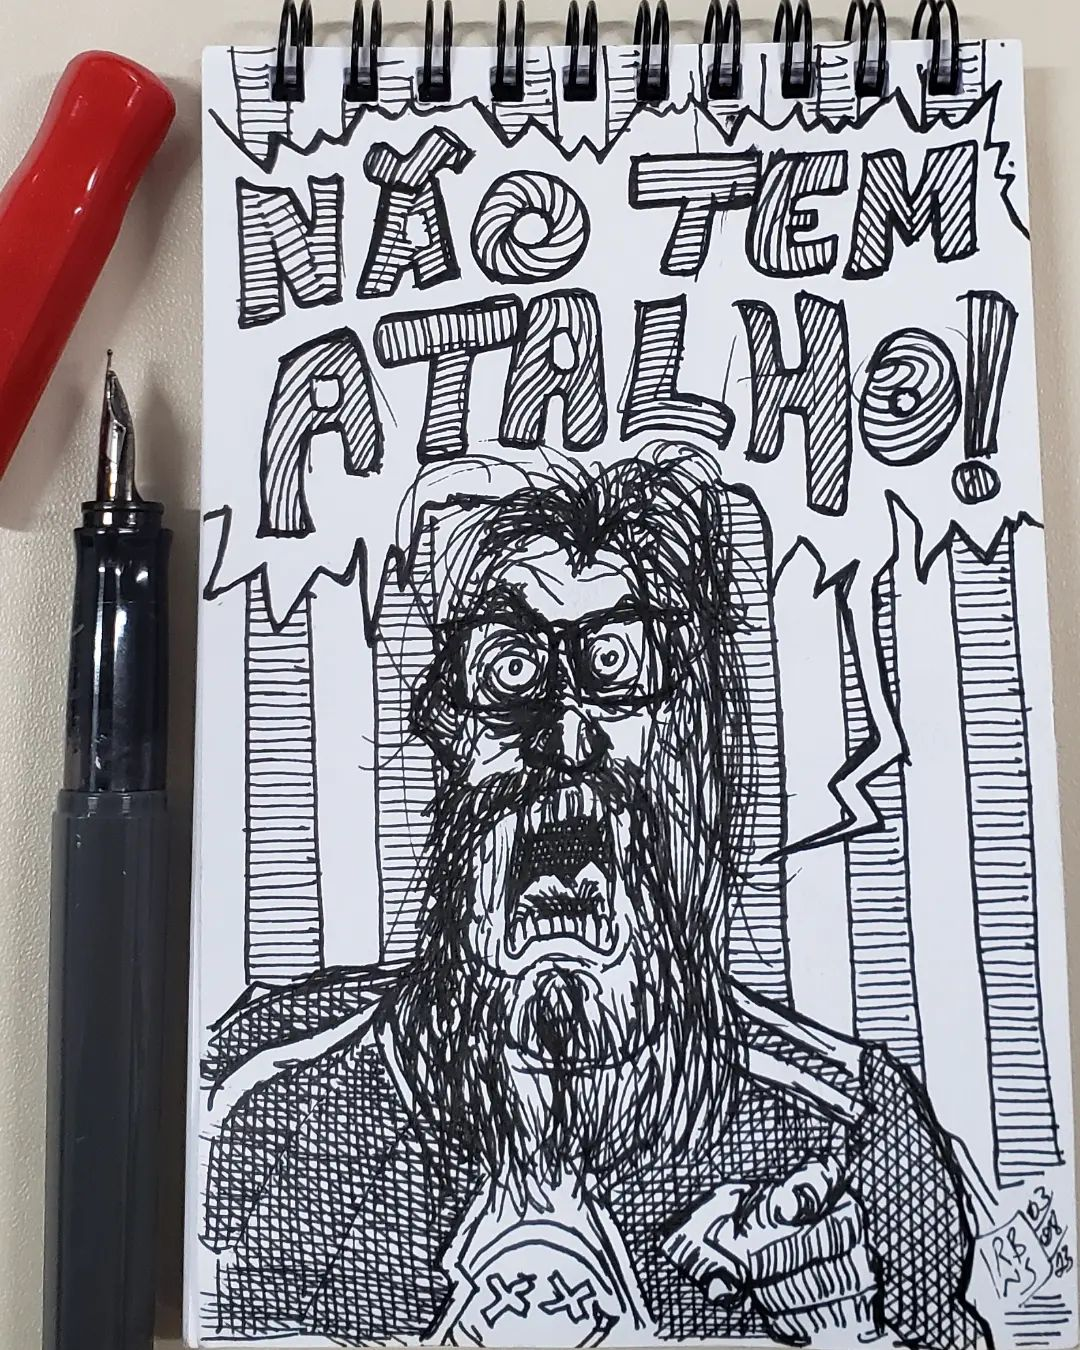 NÃO TEM
ATALHO!
03
08
23